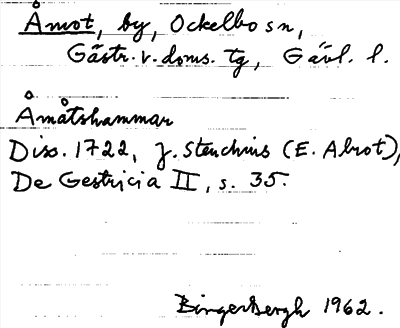 Åmot, by, Ockelbo sn,
Gästr. v. doms. tg, Gävl. l.
Åmåtshammar
Diss. 1722, J. Stenchius (E. Alrot),
De Gestricia II, s. 35.
Bingerbergh 1962.